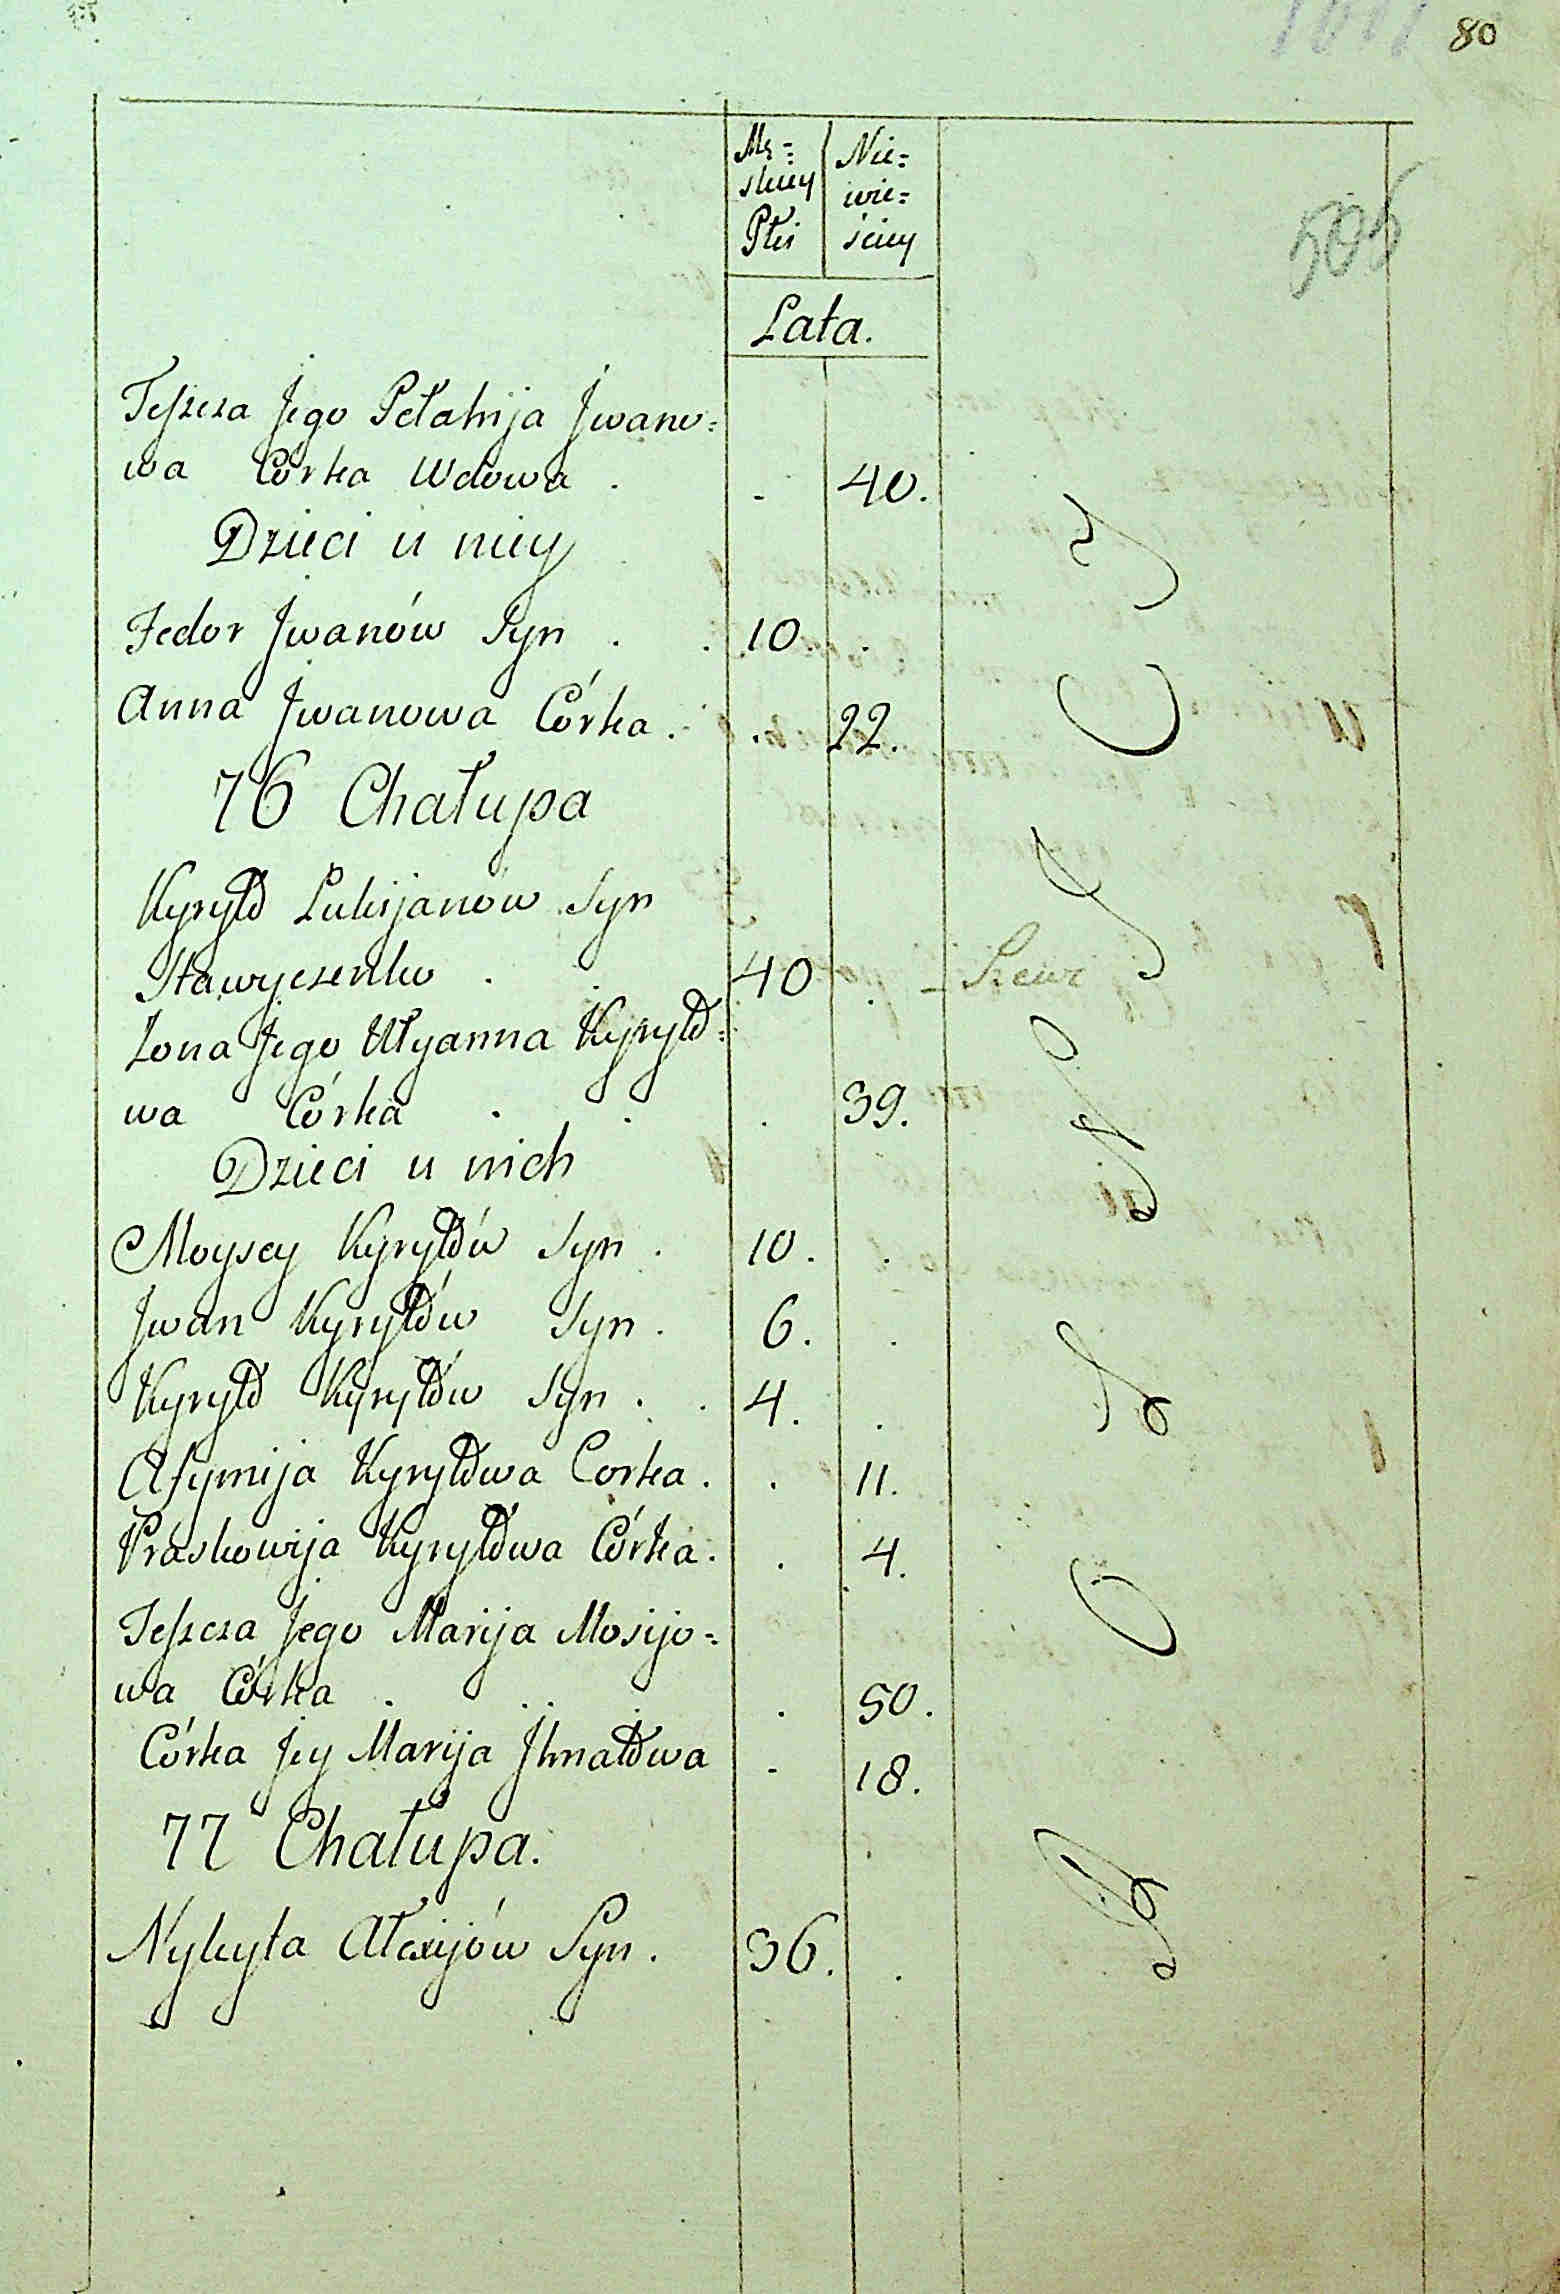 80
Mę=
skiey
Płci
Nie=
wie=
ściey
505
Lata.
Teszcza Jego Pełahija Jwano=
wa Córka Wdowa . - 40.
Dzieci u niey
Fedor Jwanów Syn . . 10 .
Anna Jwanowa Córka . . 22.
76 Chałupa
Kyryło Lukijanów Syn
Stawyczenko . . 40 . - Szewc
Żona Jego Ułyanna Kyryło=
wa Córka . . . 39.
Dzieci u nich
Moysey Kyryłów Syn . 10. .
Jwan Kyryłów Syn . 6. .
Kyryło Kyryłów Syn . . 4. .
Afymija Kyryłowa Corka . . 11.
Praskowija Kyryłowa Córka . . 4.
Teszcza Jego Marija Mosijo=
wa Córka . . . 50.
Córka Jey Marija Jhnałowa - 18.
77 Chałupa.
Nykyta Ałexijów Syn . 36. .